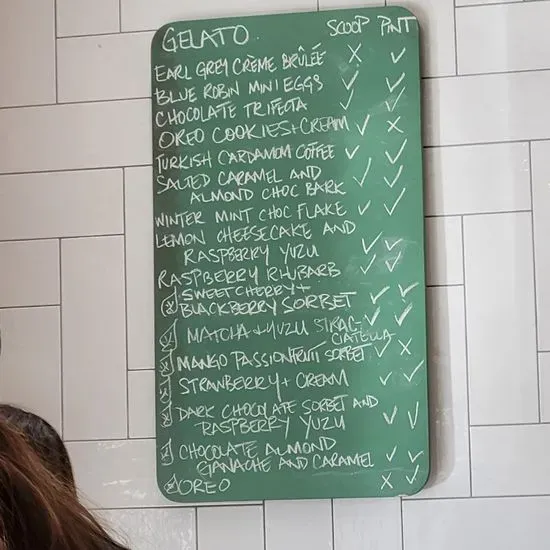 GELATO SCOOP PINT
EARL GREY CRÈME BRÛLÉE ✗ ✓
BLUE ROBIN MINI EGGS ✓ ✓
CHOCOLATE TRIFECTA ✓ ✓
OREO COOKIES + CREAM ✓ ✗
TURKISH CARDAMOM COFFEE ✓ ✓
SALTED CARAMEL AND
ALMOND CHOC BARK ✓ ✓
WINTER MINT CHOC FLAKE ✓ ✓
LEMON CHEESECAKE AND
RASPBERRY YUZU ✓ ✓
RASPBERRY RHUBARB ✓ ✓
SWEET CHERRY +
BLACKBERRY SORBET ✓ ✓
MATCHA + YUZU STRAC- ✓ ✓
CIATELLA
MANGO PASSIONFRUIT SORBET ✓ ✗
STRAWBERRY + CREAM ✓ ✓
DARK CHOCOLATE SORBET AND
RASPBERRY YUZU ✓ ✓
CHOCOLATE ALMOND
GANACHE AND CARAMEL ✓ ✓
OREO ✗ ✓